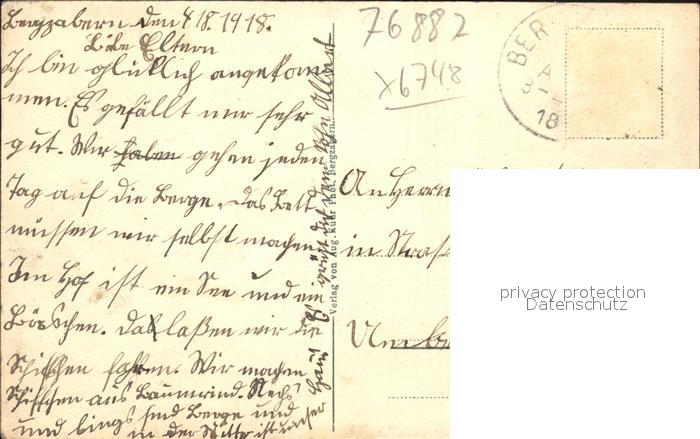 Bergzabern den 4/8.1918.
Liebe Eltern
Ich bin glücklich angekom-
men. Es gefällt mir sehr
gut. Wir haben gehen jeden
Tag auf die Berge. Das Bett
müssen wir selbst machen.
Im Hof ist ein See und ein
Bööschen. Da laßen wir die
Schiffchen fahren. Wir machen
Schiffchen aus Baumrind. Rechts
und lings sind Berge und
in der Mitte ist unser
Haus. Es grüßt dich dein Sohn Albert
Verlag von Aug. Kuhr Phot. Bergzabern.
76882
x6748
BER
18
An Herrn
in Stras
privacy protection
Datenschutz